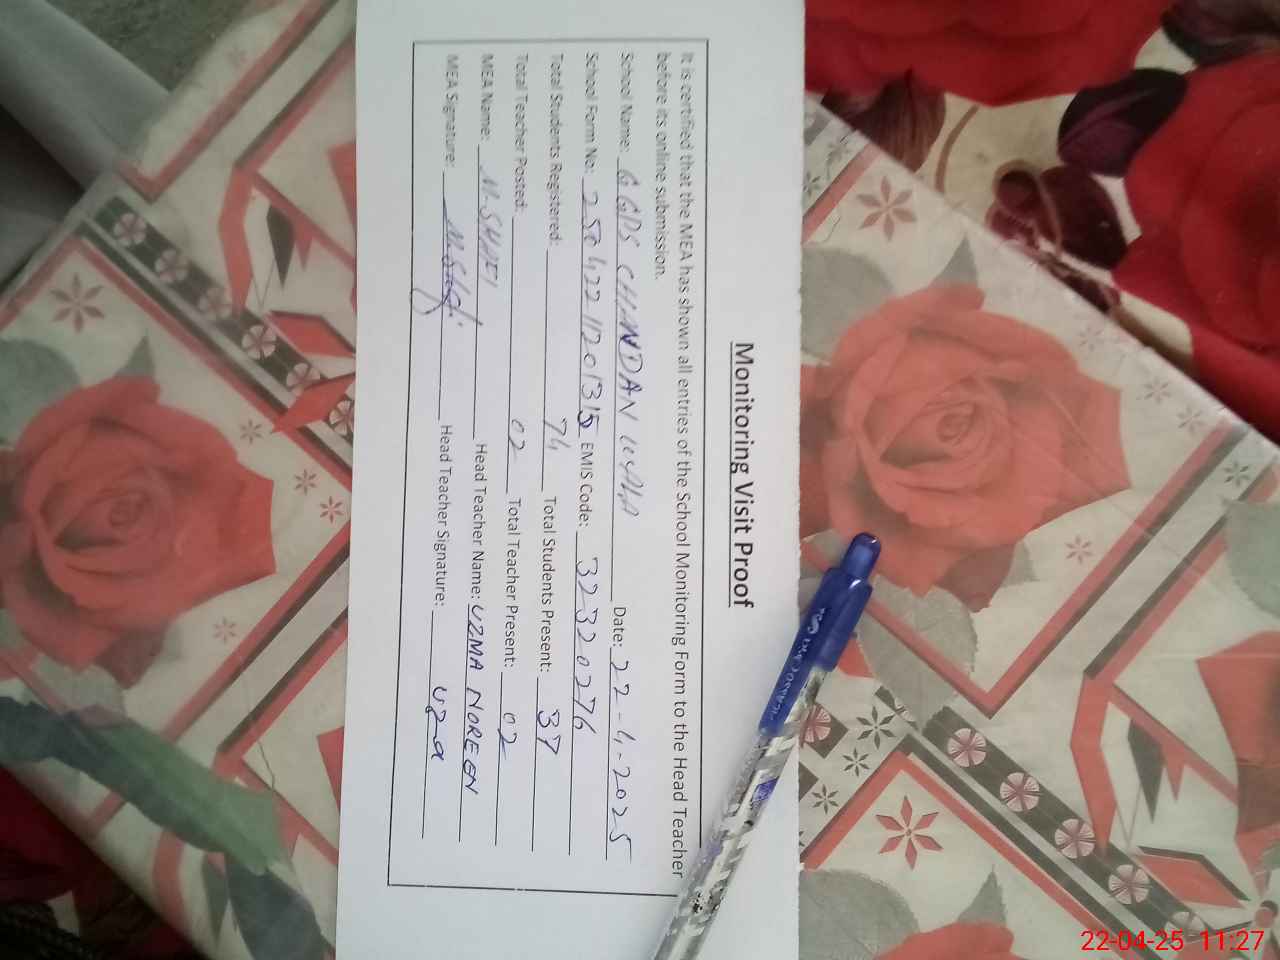 Monitoring Visit Proof
It is certified that the MEA has shown all entries of the School Monitoring Form to the Head Teacher
before its online submission.
School Name: GGPS CHANDAN WALA Date: 22-4-2025
School Form No: EMIS Code: 32320276
Total Students Registered: 74 Total Students Present: 37
Total Teacher Posted: 02 Total Teacher Present: 02
MEA Name: M-SHAFI Head Teacher Name: UZMA NOREEN
MEA Signature: M.Shafi Head Teacher Signature: uzma
22-04-25 11:27